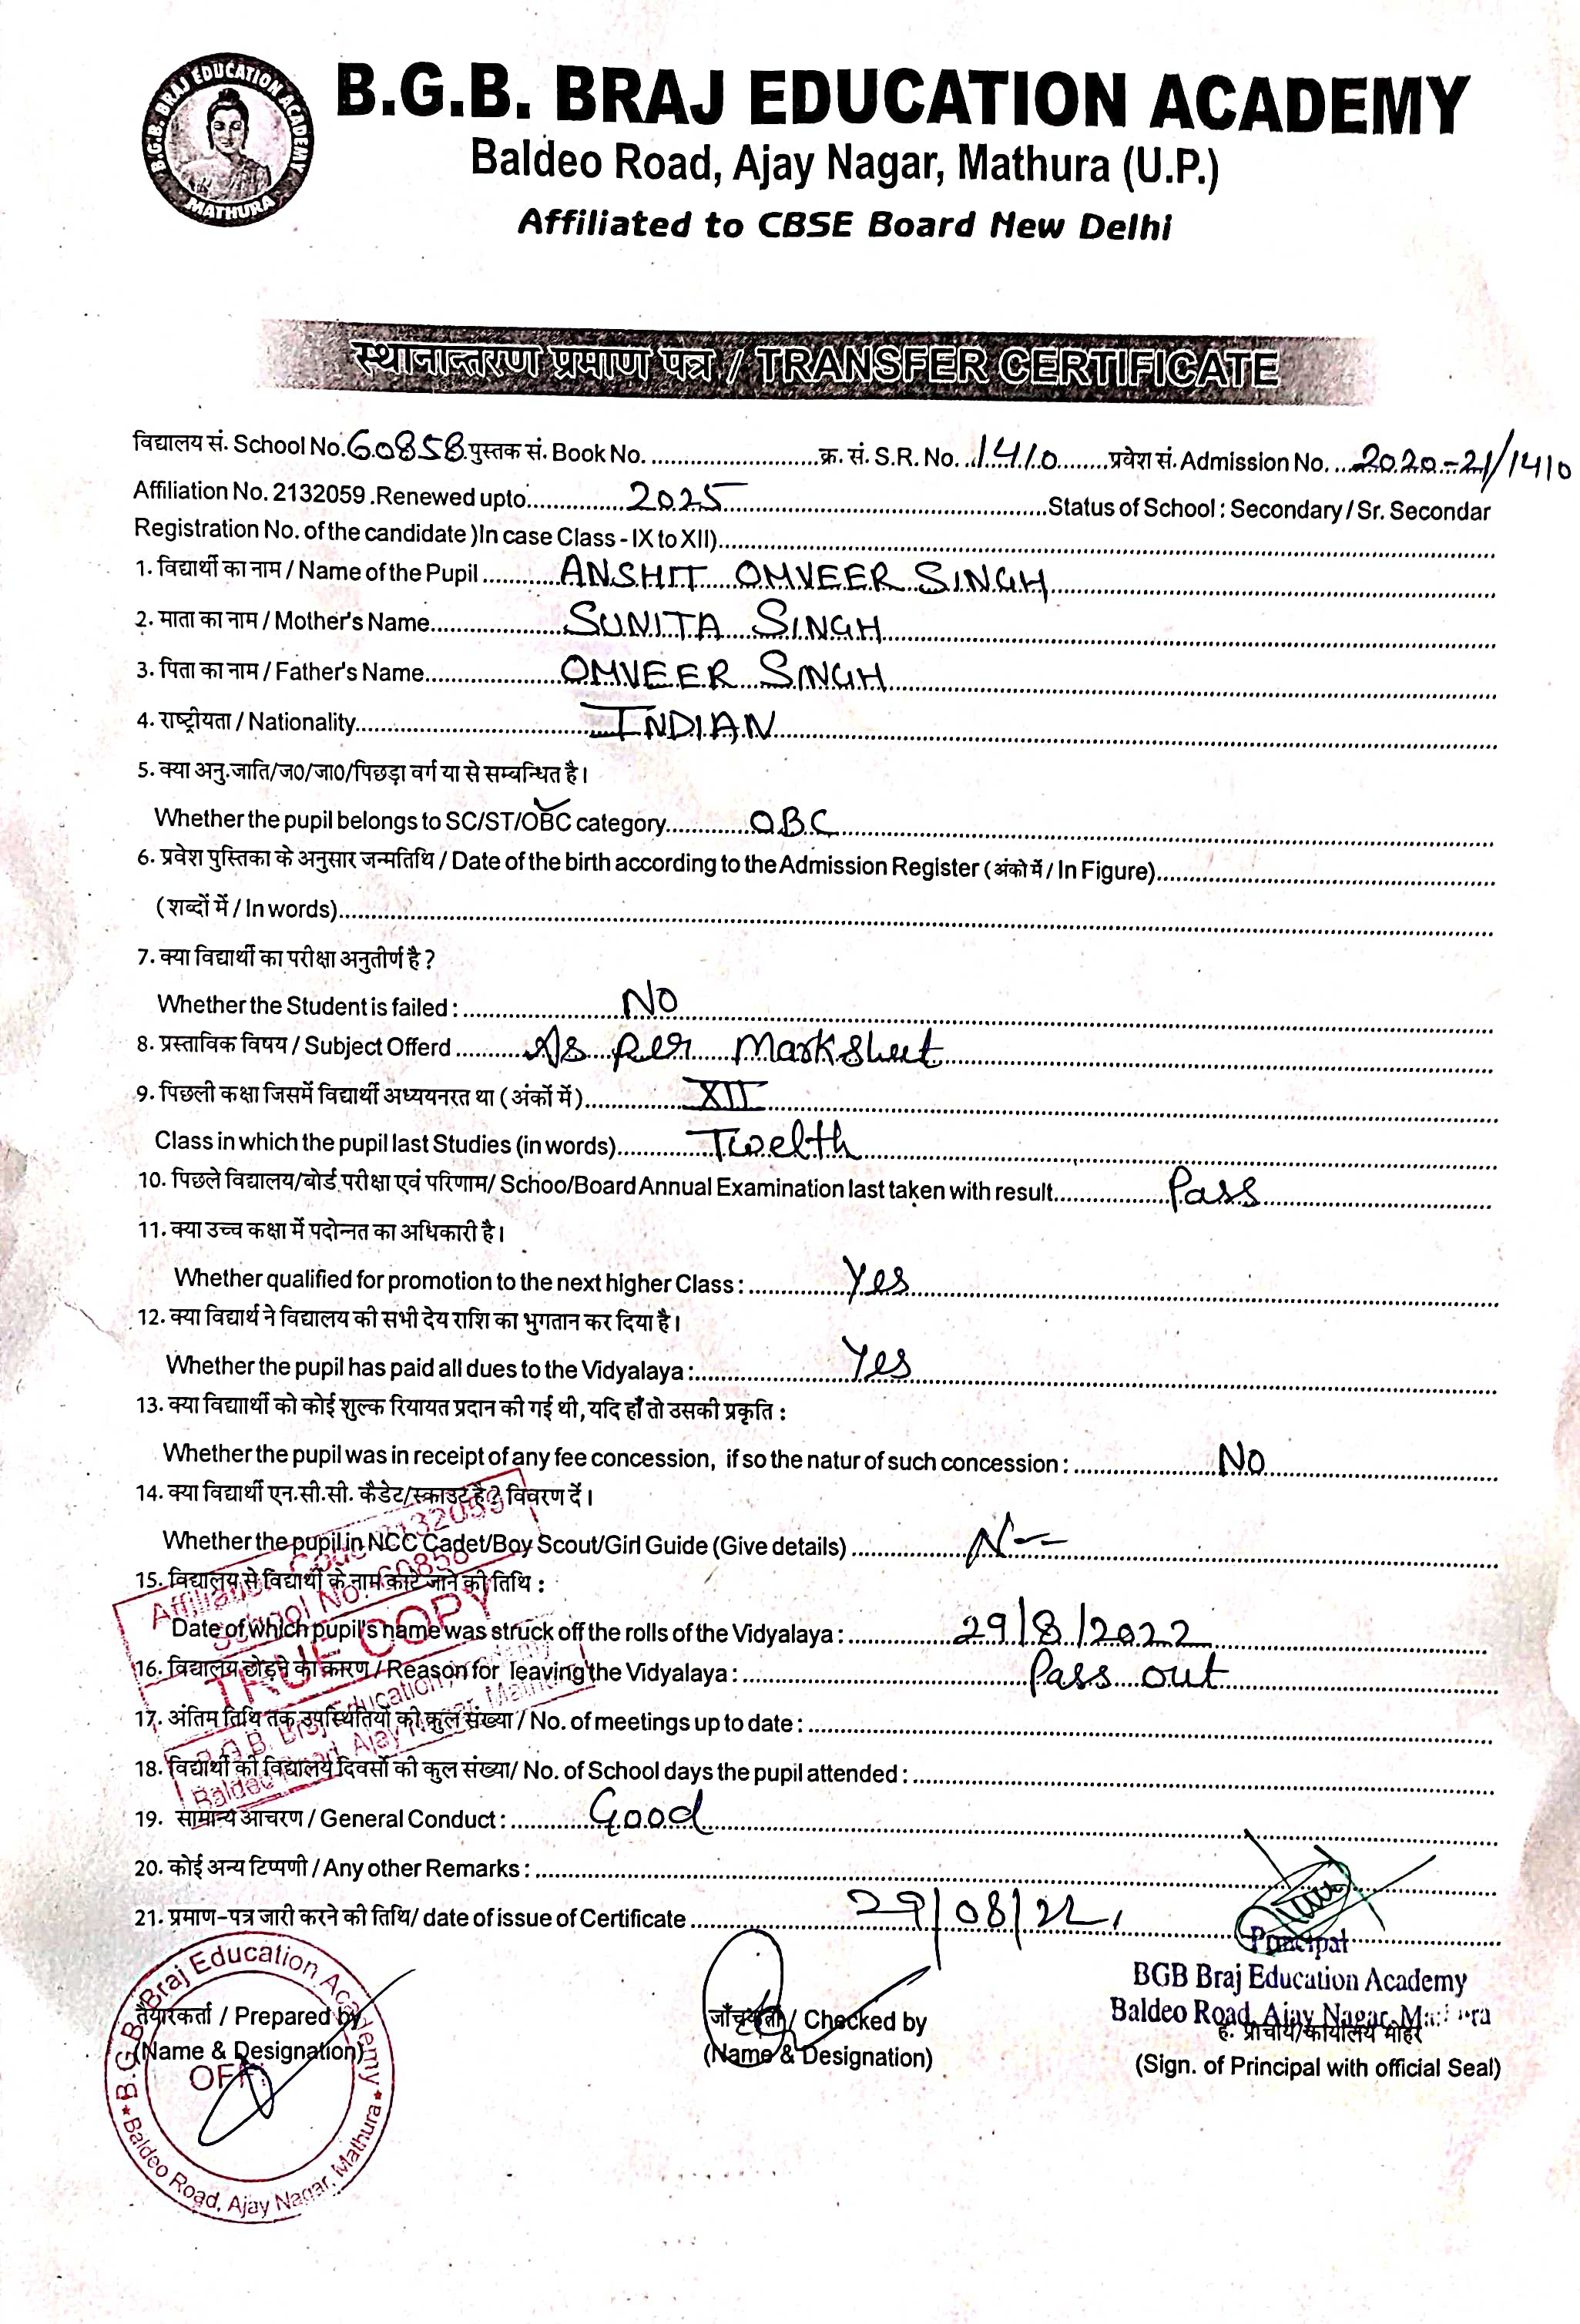 B.G.B. BRAJ EDUCATION ACADEMY
MATHURA
B.G.B. BRAJ EDUCATION ACADEMY
Baldeo Road, Ajay Nagar, Mathura (U.P.)
Affiliated to CBSE Board New Delhi
स्थानान्तरण प्रमाण पत्र / TRANSFER CERTIFICATE
विद्यालय सं. School No. 60858 पुस्तक सं. Book No. ........ क्र. सं. S.R. No. 1410 प्रवेश सं. Admission No. 2020-21/1410
Affiliation No. 2132059 . Renewed upto 2025 Status of School : Secondary / Sr. Secondar
Registration No. of the candidate )In case Class - IX to XII)
1. विद्यार्थी का नाम / Name of the Pupil ANSHIT OMVEER SINGH
2. माता का नाम / Mother's Name SUNITA SINGH
3. पिता का नाम / Father's Name OMVEER SINGH
4. राष्ट्रीयता / Nationality INDIAN
5. क्या अनु.जाति/ज0/जा0/पिछड़ा वर्ग या से सम्बन्धित है।
Whether the pupil belongs to SC/ST/OBC category OBC
6. प्रवेश पुस्तिका के अनुसार जन्मतिथि / Date of the birth according to the Admission Register (अंको में / In Figure)
(शब्दों में / In words)
7. क्या विद्यार्थी का परीक्षा अनुतीर्ण है ?
Whether the Student is failed : NO
8. प्रस्ताविक विषय / Subject Offerd As per Marksheet
9. पिछली कक्षा जिसमें विद्यार्थी अध्ययनरत था ( अंकों में ) XII
Class in which the pupil last Studies (in words) Twelth
10. पिछले विद्यालय/बोर्ड परीक्षा एवं परिणाम/ Schoo/Board Annual Examination last taken with result Pass
11. क्या उच्च कक्षा में पदोन्नत का अधिकारी है।
Whether qualified for promotion to the next higher Class : Yes
12. क्या विद्यार्थ ने विद्यालय की सभी देय राशि का भुगतान कर दिया है।
Whether the pupil has paid all dues to the Vidyalaya : Yes
13. क्या विद्याार्थी को कोई शुल्क रियायत प्रदान की गई थी, यदि हाँ तो उसकी प्रकृति :
Whether the pupil was in receipt of any fee concession, if so the natur of such concession : NO
14. क्या विद्यार्थी एन.सी.सी. कैडेट/स्काउट है? विवरण दें।
Whether the pupil in NCC Cadet/Boy Scout/Girl Guide (Give details) N--
15. विद्यालय से विद्यार्थी के नाम काटे जाने की तिथि :
Date of which pupil's name was struck off the rolls of the Vidyalaya : 29/8/2022
16. विद्यालय छोड़ने का कारण / Reason for leaving the Vidyalaya : Pass out
17. अंतिम तिथि तक उपस्थितियों की कुल संख्या / No. of meetings up to date :
18. विद्यार्थी की विद्यालय दिवसों की कुल संख्या/ No. of School days the pupil attended :
19. सामान्य आचरण / General Conduct : Good
20. कोई अन्य टिप्पणी / Any other Remarks :
21. प्रमाण-पत्र जारी करने की तिथि/ date of issue of Certificate 29/08/22
School No. 60858
TRUE COPY
Principal
BGB Braj Education Academy
Baldeo Road, Ajay Nagar,
तैयारकर्ता / Prepared by
(Name & Designation)
जाँचकर्ता / Checked by
(Name & Designation)
ह. प्राचार्य/कार्यालय मोहर
(Sign. of Principal with official Seal)
B.G.B. Braj Education Academy
Baldeo Road, Ajay Nagar, Mathura